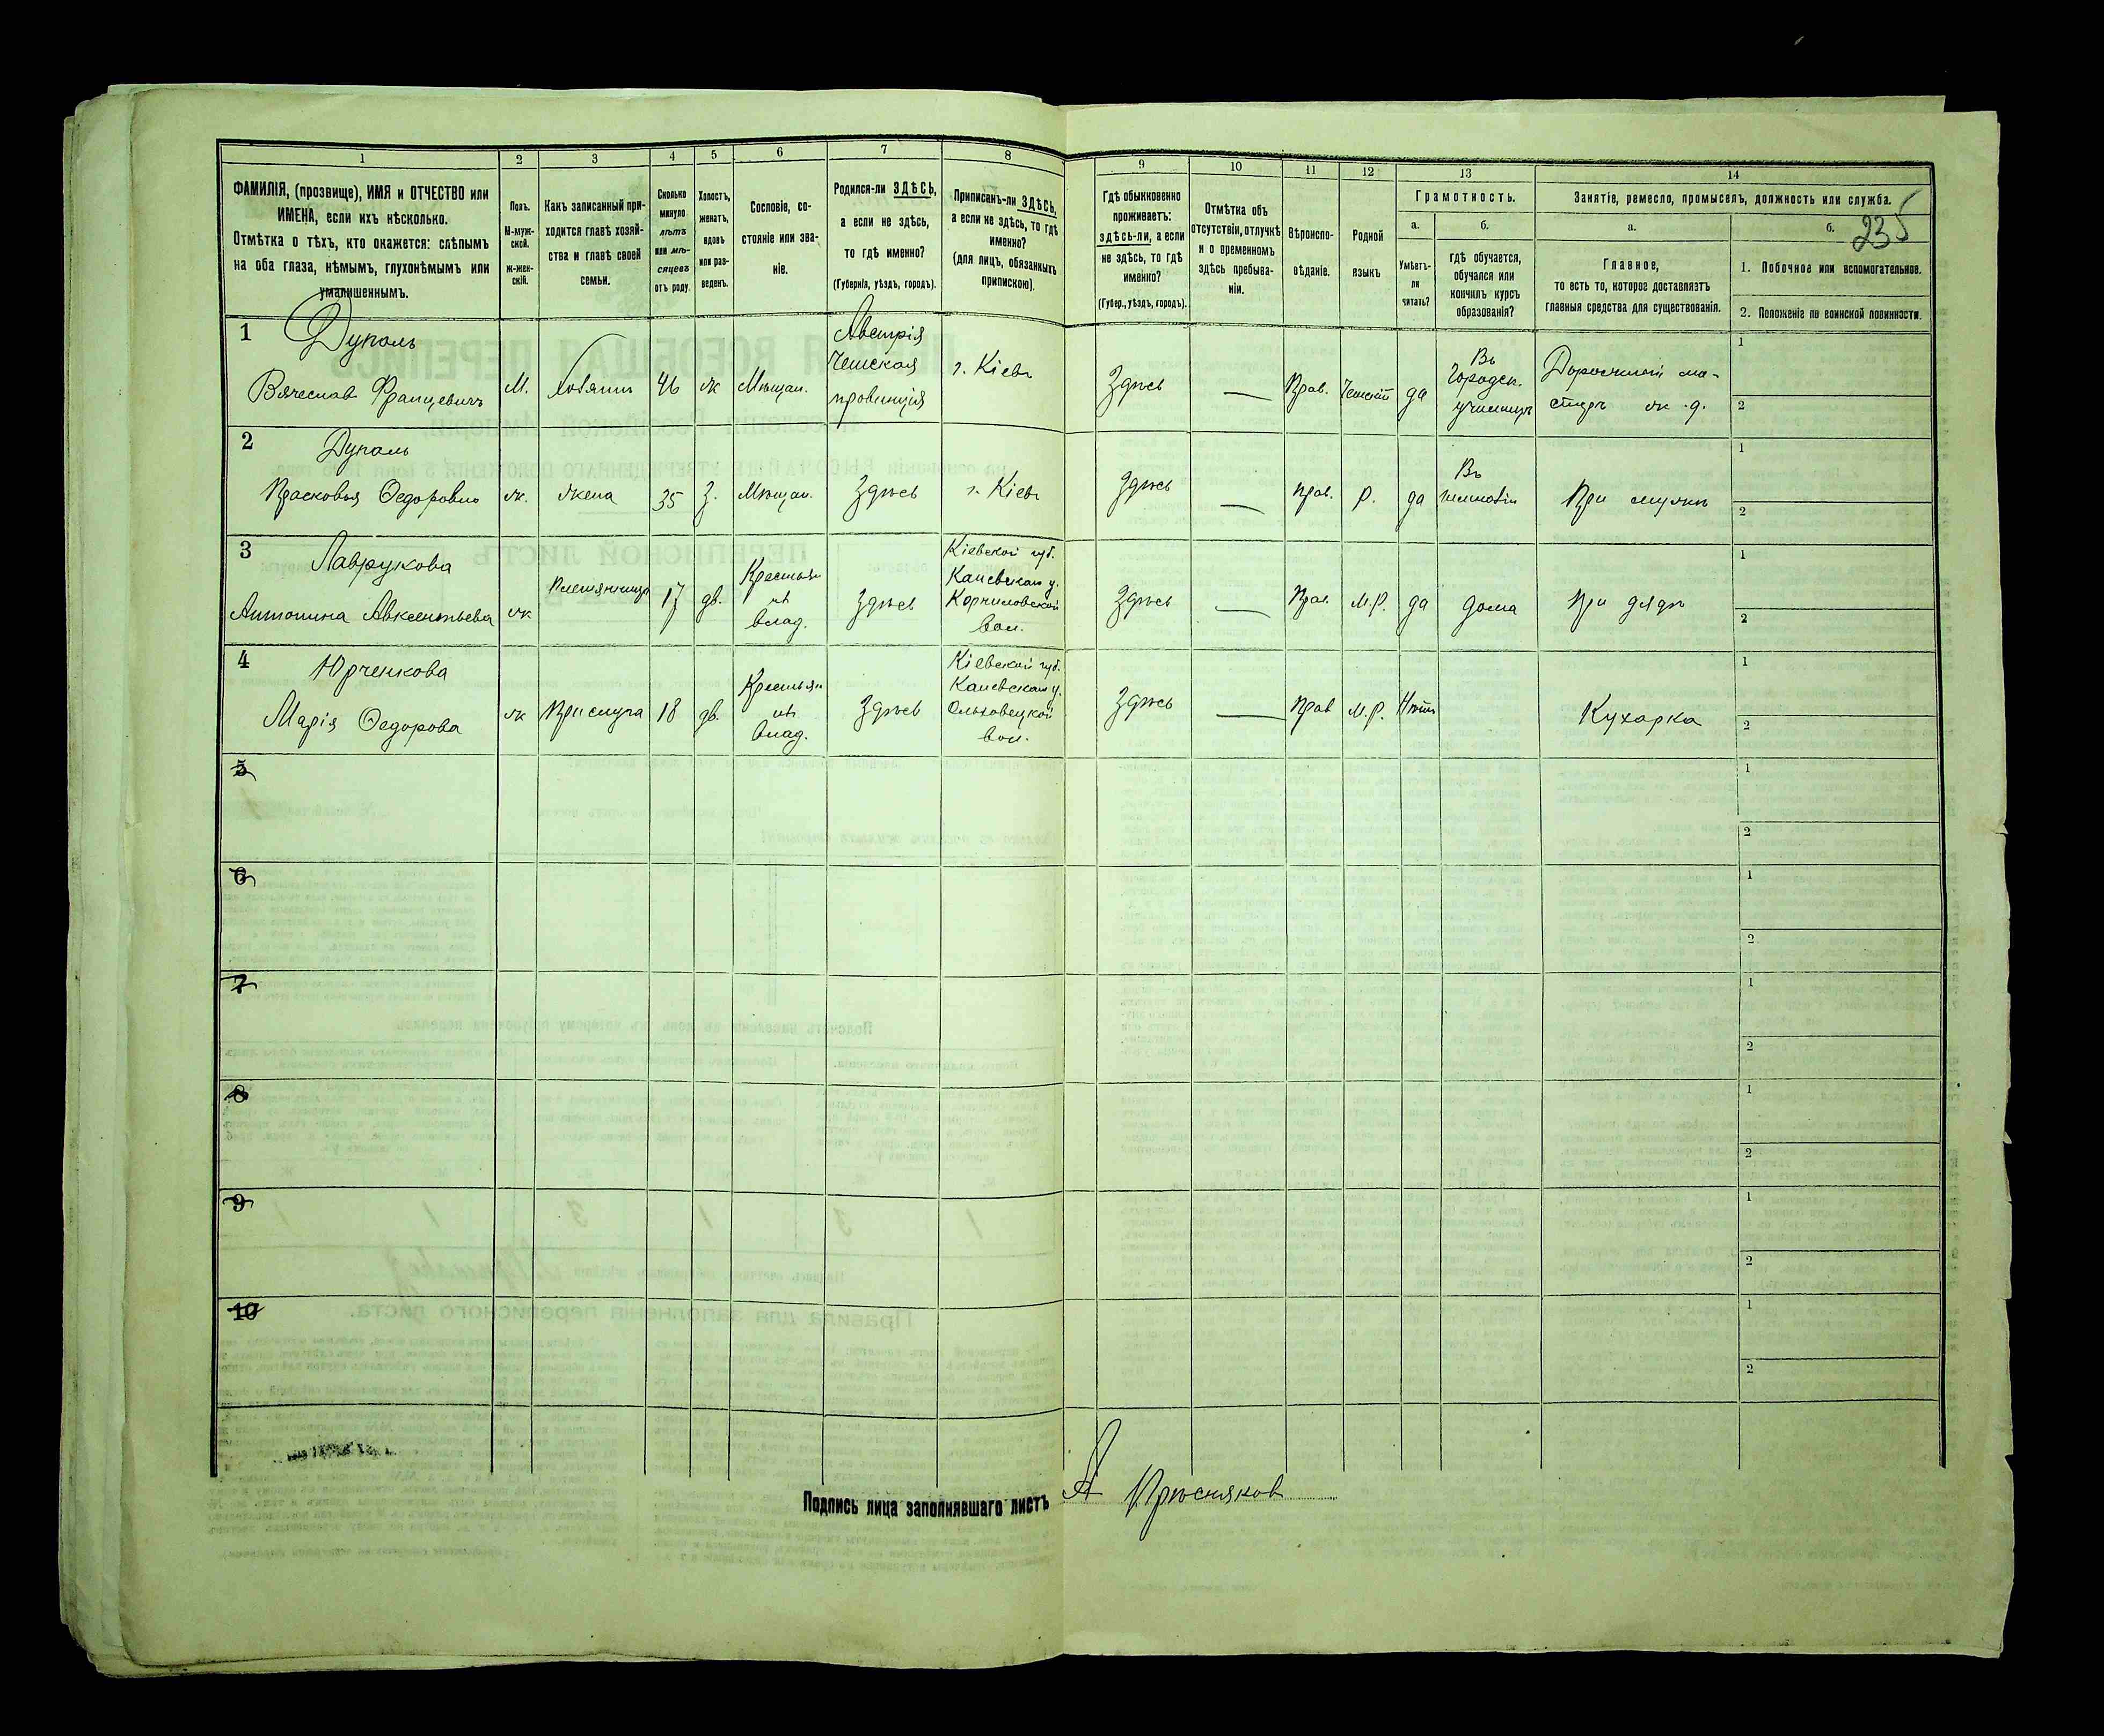 1 2 3 4 5 6 7 8 9 10 11 12 13 14
ФАМИЛІЯ, (прозвище), ИМЯ и ОТЧЕСТВО или
ИМЕНА, если ихъ нѣсколько.
Отмѣтка о тѣхъ, кто окажется: слѣпымъ
на оба глаза, нѣмымъ, глухонѣмымъ или
умалишеннымъ.
Полъ.
М-муж-
ской.
ж-жен-
скій.
Какъ записанный при-
ходится главѣ хозяй-
ства и главѣ своей
семьи.
Сколько
минуло
лѣтъ
или мѣ-
сяцевъ
отъ роду.
Холостъ,
женатъ,
вдовъ
или раз-
веденъ.
Сословіе, со-
стояніе или зва-
ніе.
Родился-ли ЗДѢСЬ,
а если не здѣсь,
то гдѣ именно?
(Губернія, уѣздъ, городъ).
Приписанъ-ли ЗДѢСЬ,
а если не здѣсь, то гдѣ
именно?
(для лицъ, обязанныхъ
припискою).
Гдѣ обыкновенно
проживаетъ:
здѣсь-ли, а если
не здѣсь, то гдѣ
именно?
(Губер., уѣздъ, городъ).
Отмѣтка объ
отсутствіи, отлучкѣ
и о временномъ
здѣсь пребыва-
ніи.
Вѣроиспо-
вѣданіе.
Родной
языкъ
Грамотность.
а.
Умѣетъ-
ли
читать?
б.
гдѣ обучается,
обучался или
кончилъ курсъ
образованія?
Занятіе, ремесло, промыселъ, должность или служба.
а.
Главное,
то есть то, которое доставляетъ
главныя средства для существованія.
б.
235
1. Побочное или вспомогательное.
2. Положеніе по воинской повинности.
1
Дупаль
Вячеславъ Францевичъ
М.
Хозяинъ
46
ж
Мѣщан.
Австрія
Чешская
провинція
г. Кіевъ
Здѣсь
—
Прав.
Чешскій
да
Въ
Городск.
училищѣ
Дорожный ма-
стеръ ж. д.
1
2
2
Дупаль
Прасковья Федоровна
ж.
Жена
35
З.
Мѣщан.
Здѣсь
г. Кіевъ
Здѣсь
—
прав.
Р.
да
Въ
гимназіи
При мужѣ
1
2
3
Лаврукова
Антонина Авксентьева
ж
Племянница
17
дв.
Крестьян
изъ
влад.
Здѣсь
Кіевской губ.
Каневскаго у.
Корниловской
вол.
Здѣсь
—
Прав.
М.Р.
да
дома
При дядѣ
1
2
4
Юрченкова
Марія Федорова
ж
Прислуга
18
дв.
Крестьян
изъ
влад.
Здѣсь
Кіевской губ.
Каневскаго у.
Ольховецкой
вол.
Здѣсь
—
Прав
М.Р.
Нѣтъ
Кухарка
1
2
5
1
2
6
1
2
7
1
2
8
1
2
9
1
2
10
1
2
Подпись лица заполнявшаго листъ А Прѣсняковъ